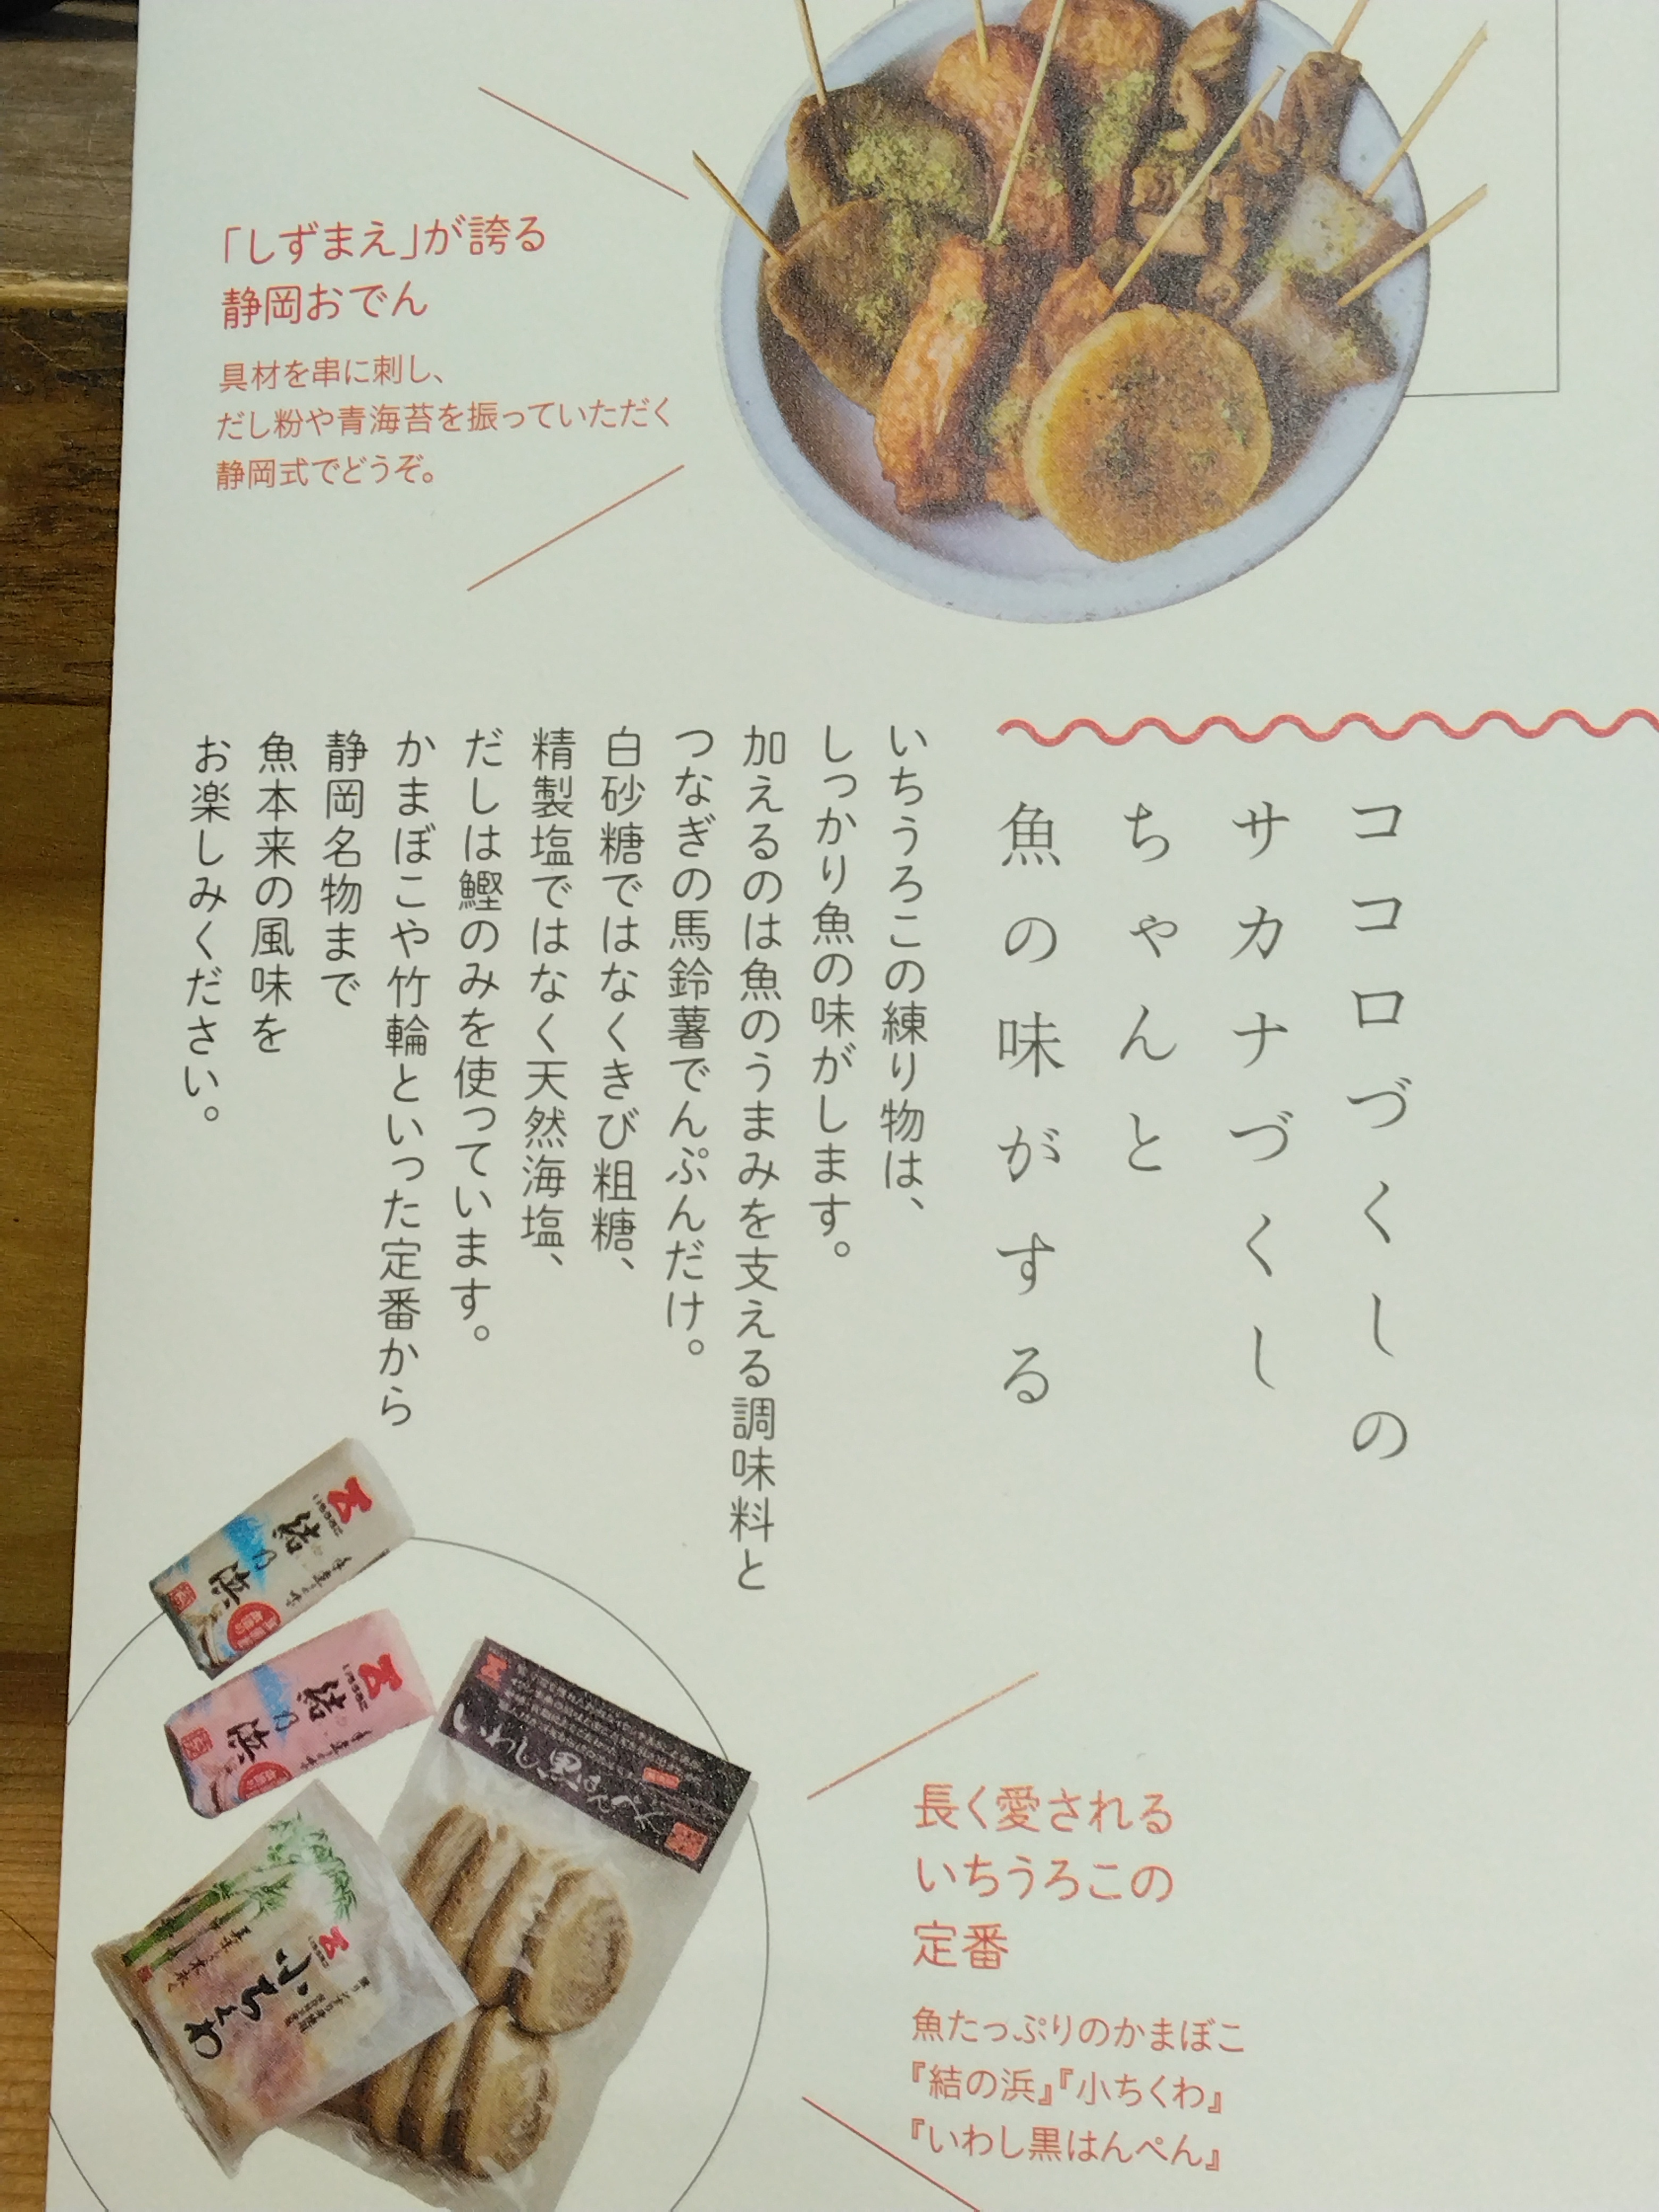 「しずまえ」が誇る
静岡おでん
具材を串に刺し、
だし粉や青海苔を振っていただく
静岡式でどうぞ。
ココロづくしの
サカナづくし
ちゃんと
魚の味がする
いちうろこの練り物は、
しっかり魚の味がします。
加えるのは魚のうまみを支える調味料と
つなぎの馬鈴薯でんぷんだけ。
白砂糖ではなくきび粗糖、
精製塩ではなく天然海塩、
だしは鰹のみを使っています。
かまぼこや竹輪といった定番から
静岡名物まで
魚本来の風味を
お楽しみください。
結の浜
結の浜
小ちくわ
長く愛される
いちうろこの
定番
魚たっぷりのかまぼこ
『結の浜』『小ちくわ』
『いわし黒はんぺん』